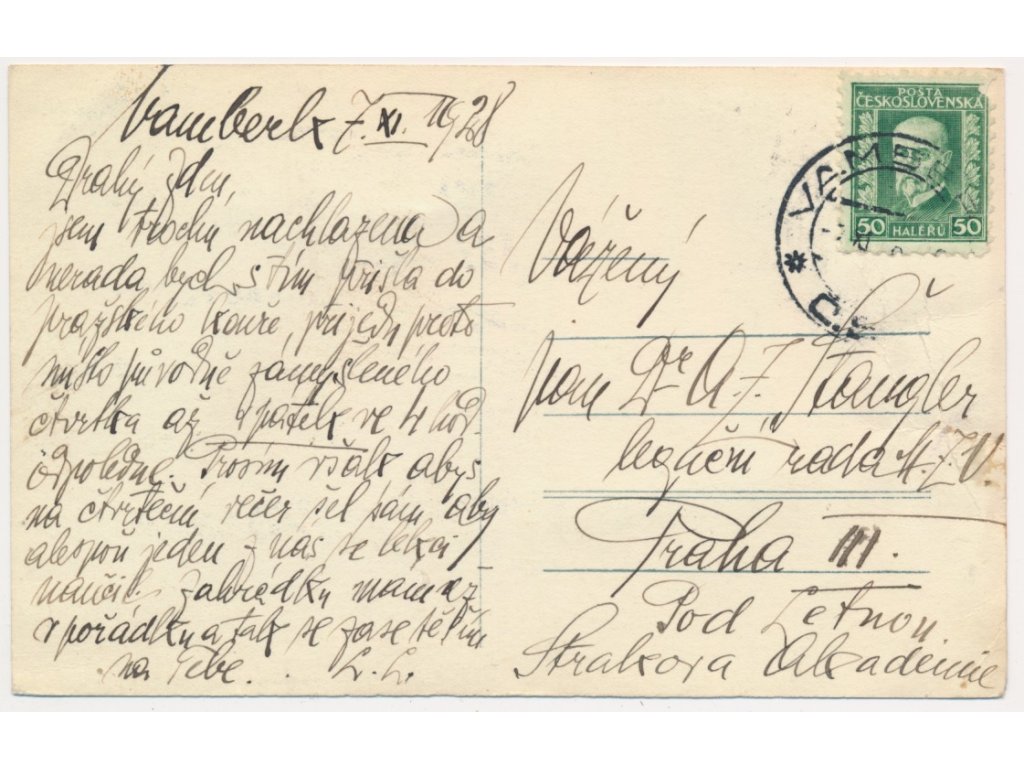 Vamberk 7. XI. 1928
Drahý
jsem trochu nachlazena a
nerada bych s tím přišla do
pražského kouře, přijedu proto
místo původně zamýšleného
čtvrtka až v pátek ve 4 hod.
odpoledne. Prosím však abys
na čtvrteční večer šel sám, aby
alespoň jeden z nás se lekci
naučil. Zahrádku mám
v pořádku a tak se zase těším
na Tebe. L. L.
POŠTA
ČESKOSLOVENSKÁ
50 HALÉŘŮ 50
VAMBERK
Č.S.
Vážený
pan Dr A. J. Stangler
legační rada M. Z. V.
Praha III.
Pod Letnou
Strakova Akademie